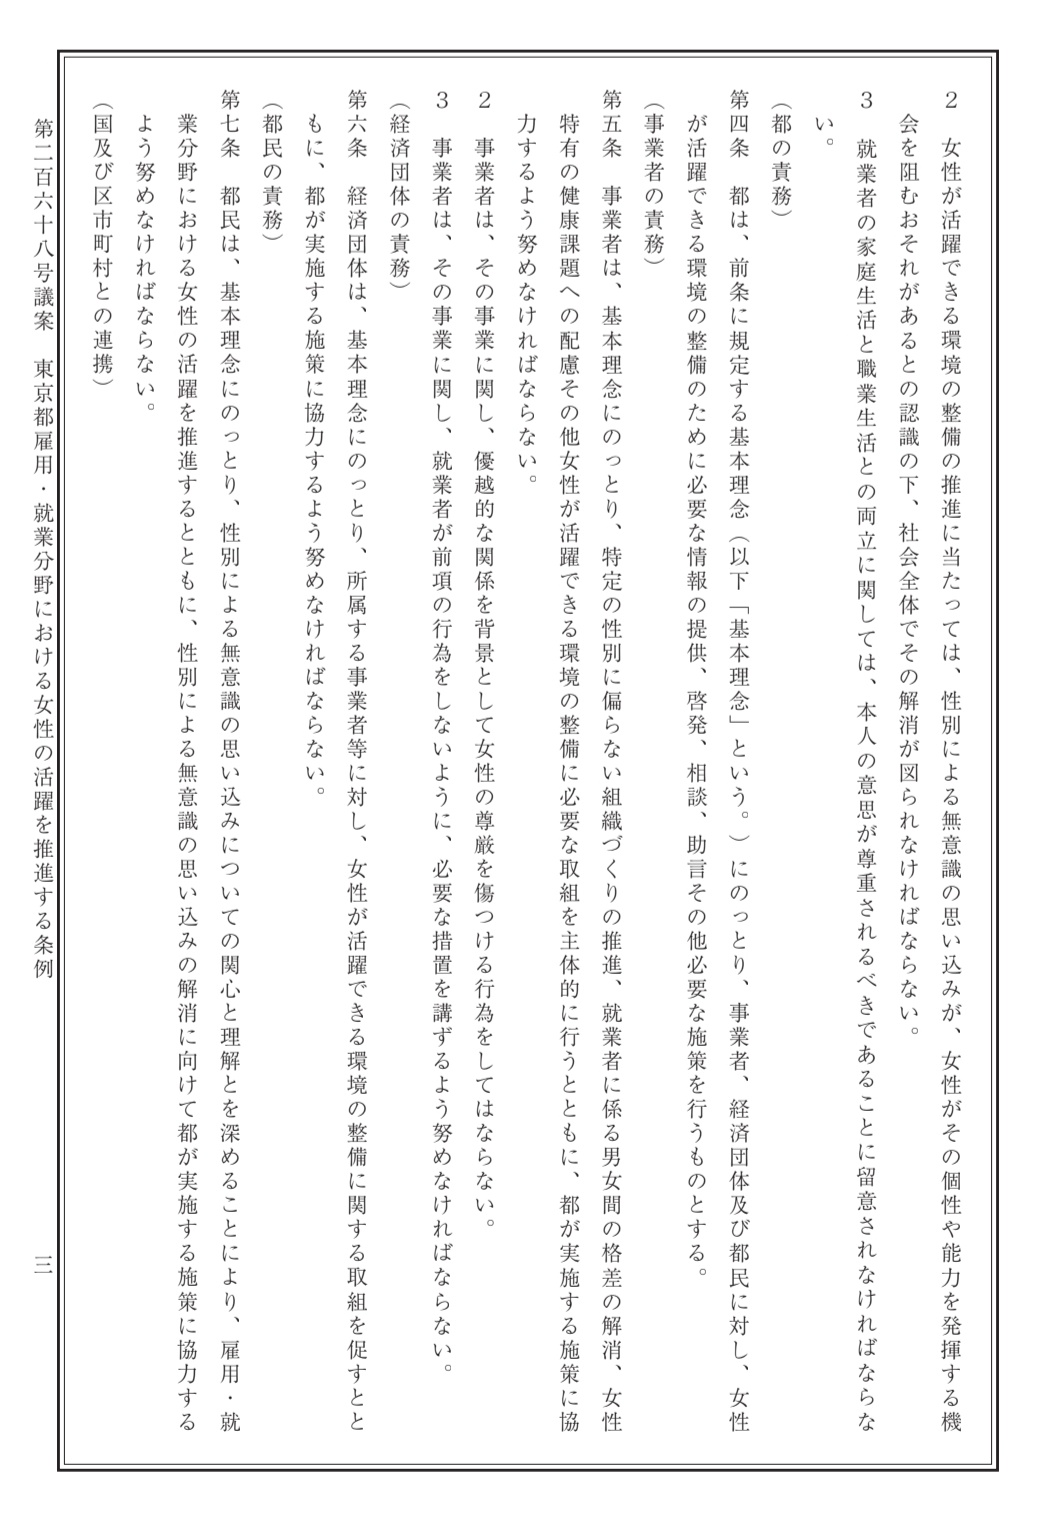 ２　女性が活躍できる環境の整備の推進に当たっては、性別による無意識の思い込みが、女性がその個性や能力を発揮する機
会を阻むおそれがあるとの認識の下、社会全体でその解消が図られなければならない。
３　就業者の家庭生活と職業生活との両立に関しては、本人の意思が尊重されるべきであることに留意されなければならな
い。
（都の責務）
第四条　都は、前条に規定する基本理念（以下「基本理念」という。）にのっとり、事業者、経済団体及び都民に対し、女性
が活躍できる環境の整備のために必要な情報の提供、啓発、相談、助言その他必要な施策を行うものとする。
（事業者の責務）
第五条　事業者は、基本理念にのっとり、特定の性別に偏らない組織づくりの推進、就業者に係る男女間の格差の解消、女性
特有の健康課題への配慮その他女性が活躍できる環境の整備に必要な取組を主体的に行うとともに、都が実施する施策に協
力するよう努めなければならない。
２　事業者は、その事業に関し、優越的な関係を背景として女性の尊厳を傷つける行為をしてはならない。
３　事業者は、その事業に関し、就業者が前項の行為をしないように、必要な措置を講ずるよう努めなければならない。
（経済団体の責務）
第六条　経済団体は、基本理念にのっとり、所属する事業者等に対し、女性が活躍できる環境の整備に関する取組を促すとと
もに、都が実施する施策に協力するよう努めなければならない。
（都民の責務）
第七条　都民は、基本理念にのっとり、性別による無意識の思い込みについての関心と理解とを深めることにより、雇用・就
業分野における女性の活躍を推進するとともに、性別による無意識の思い込みの解消に向けて都が実施する施策に協力する
よう努めなければならない。
（国及び区市町村との連携）
第二百六十八号議案　東京都雇用・就業分野における女性の活躍を推進する条例
三